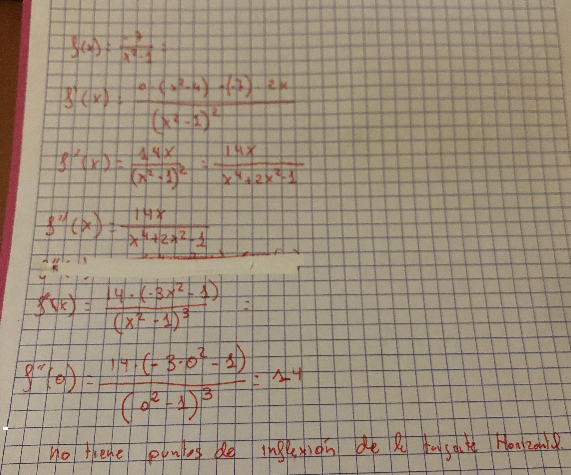 f(x) = -7 / x²-1 :
f'(x) = 0·(x²-1) - (-7)·2x / (x²-1)²
f''(x) = 14x / (x²-1)² = 14x / x⁴+2x²-1
f''(x) = 14x / x⁴+2x²-1
f''(x) = 14·(-3x²-1) / (x²-1)³ =
f''(0) = 14·(-3·0²-1) / (0²-1)³ = 14
no tiene puntos de inflexión de tangente Horizontal